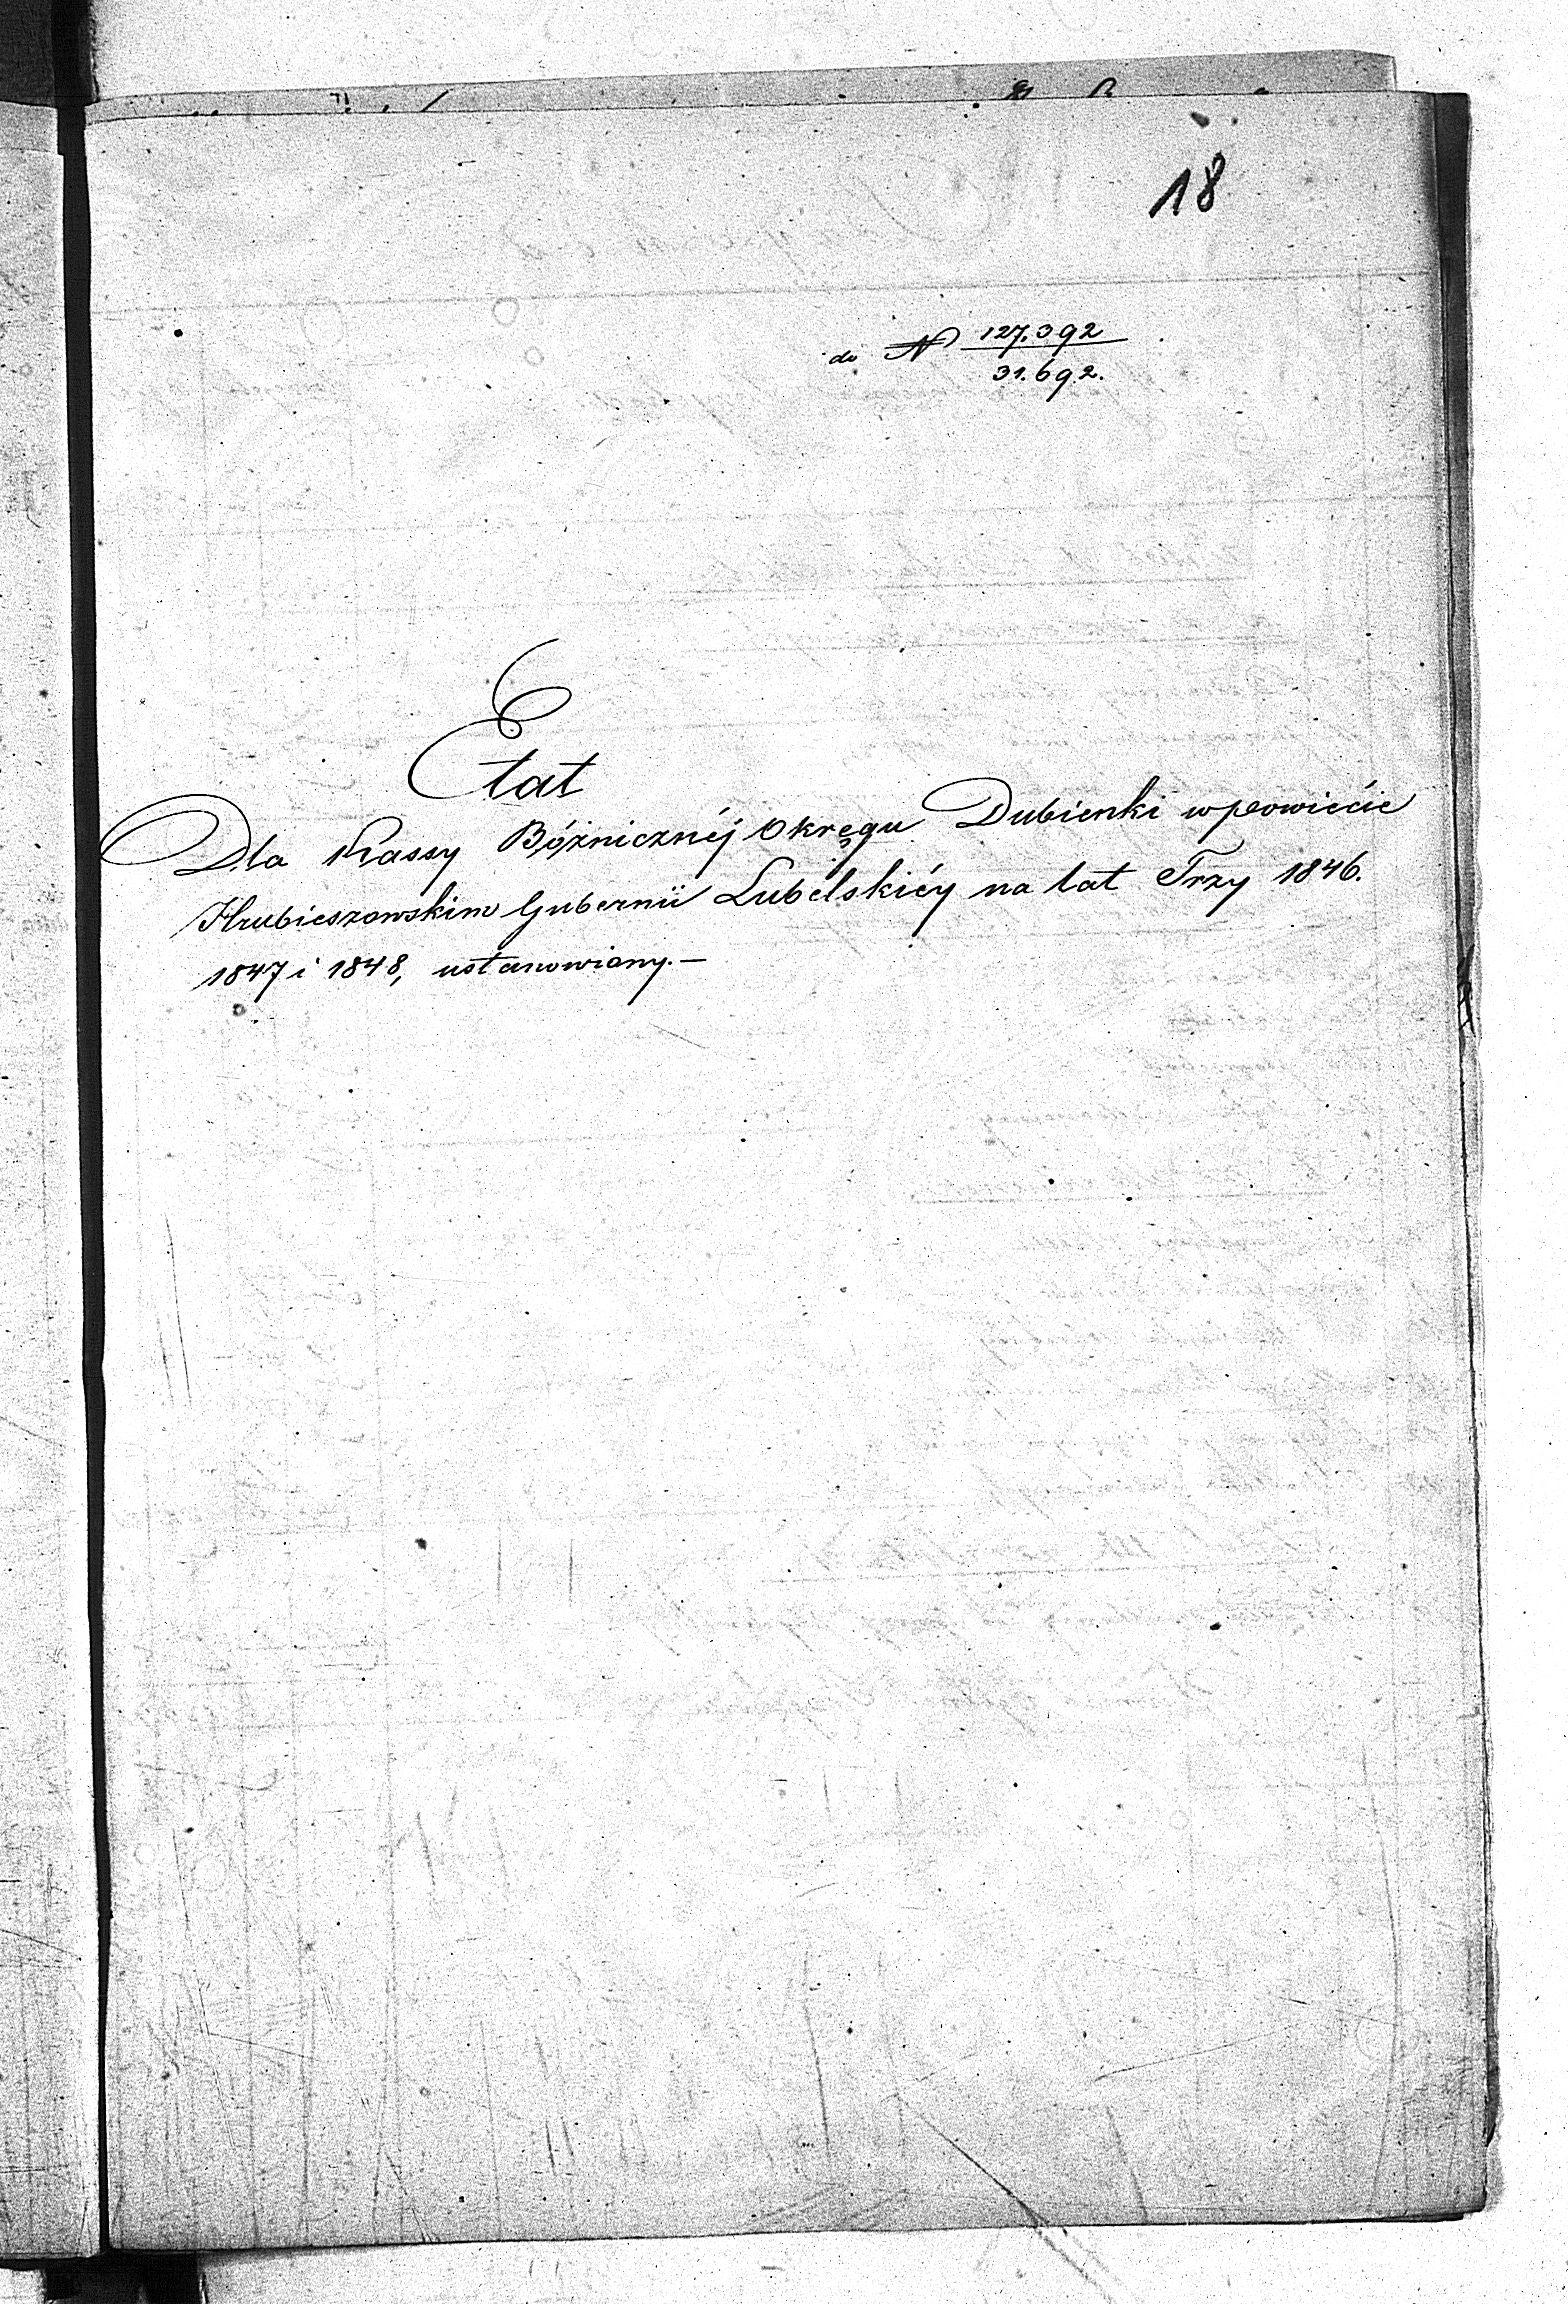 18
do N 127.392
31.692.
Etat
Dla Kassy Bóżnicznéj Okręgu Dubienki w powiecie
Hrubieszowskim Gubernii Lubelskiéy na lat Trzy 1846.
1847 i 1848, ustanowiony.—